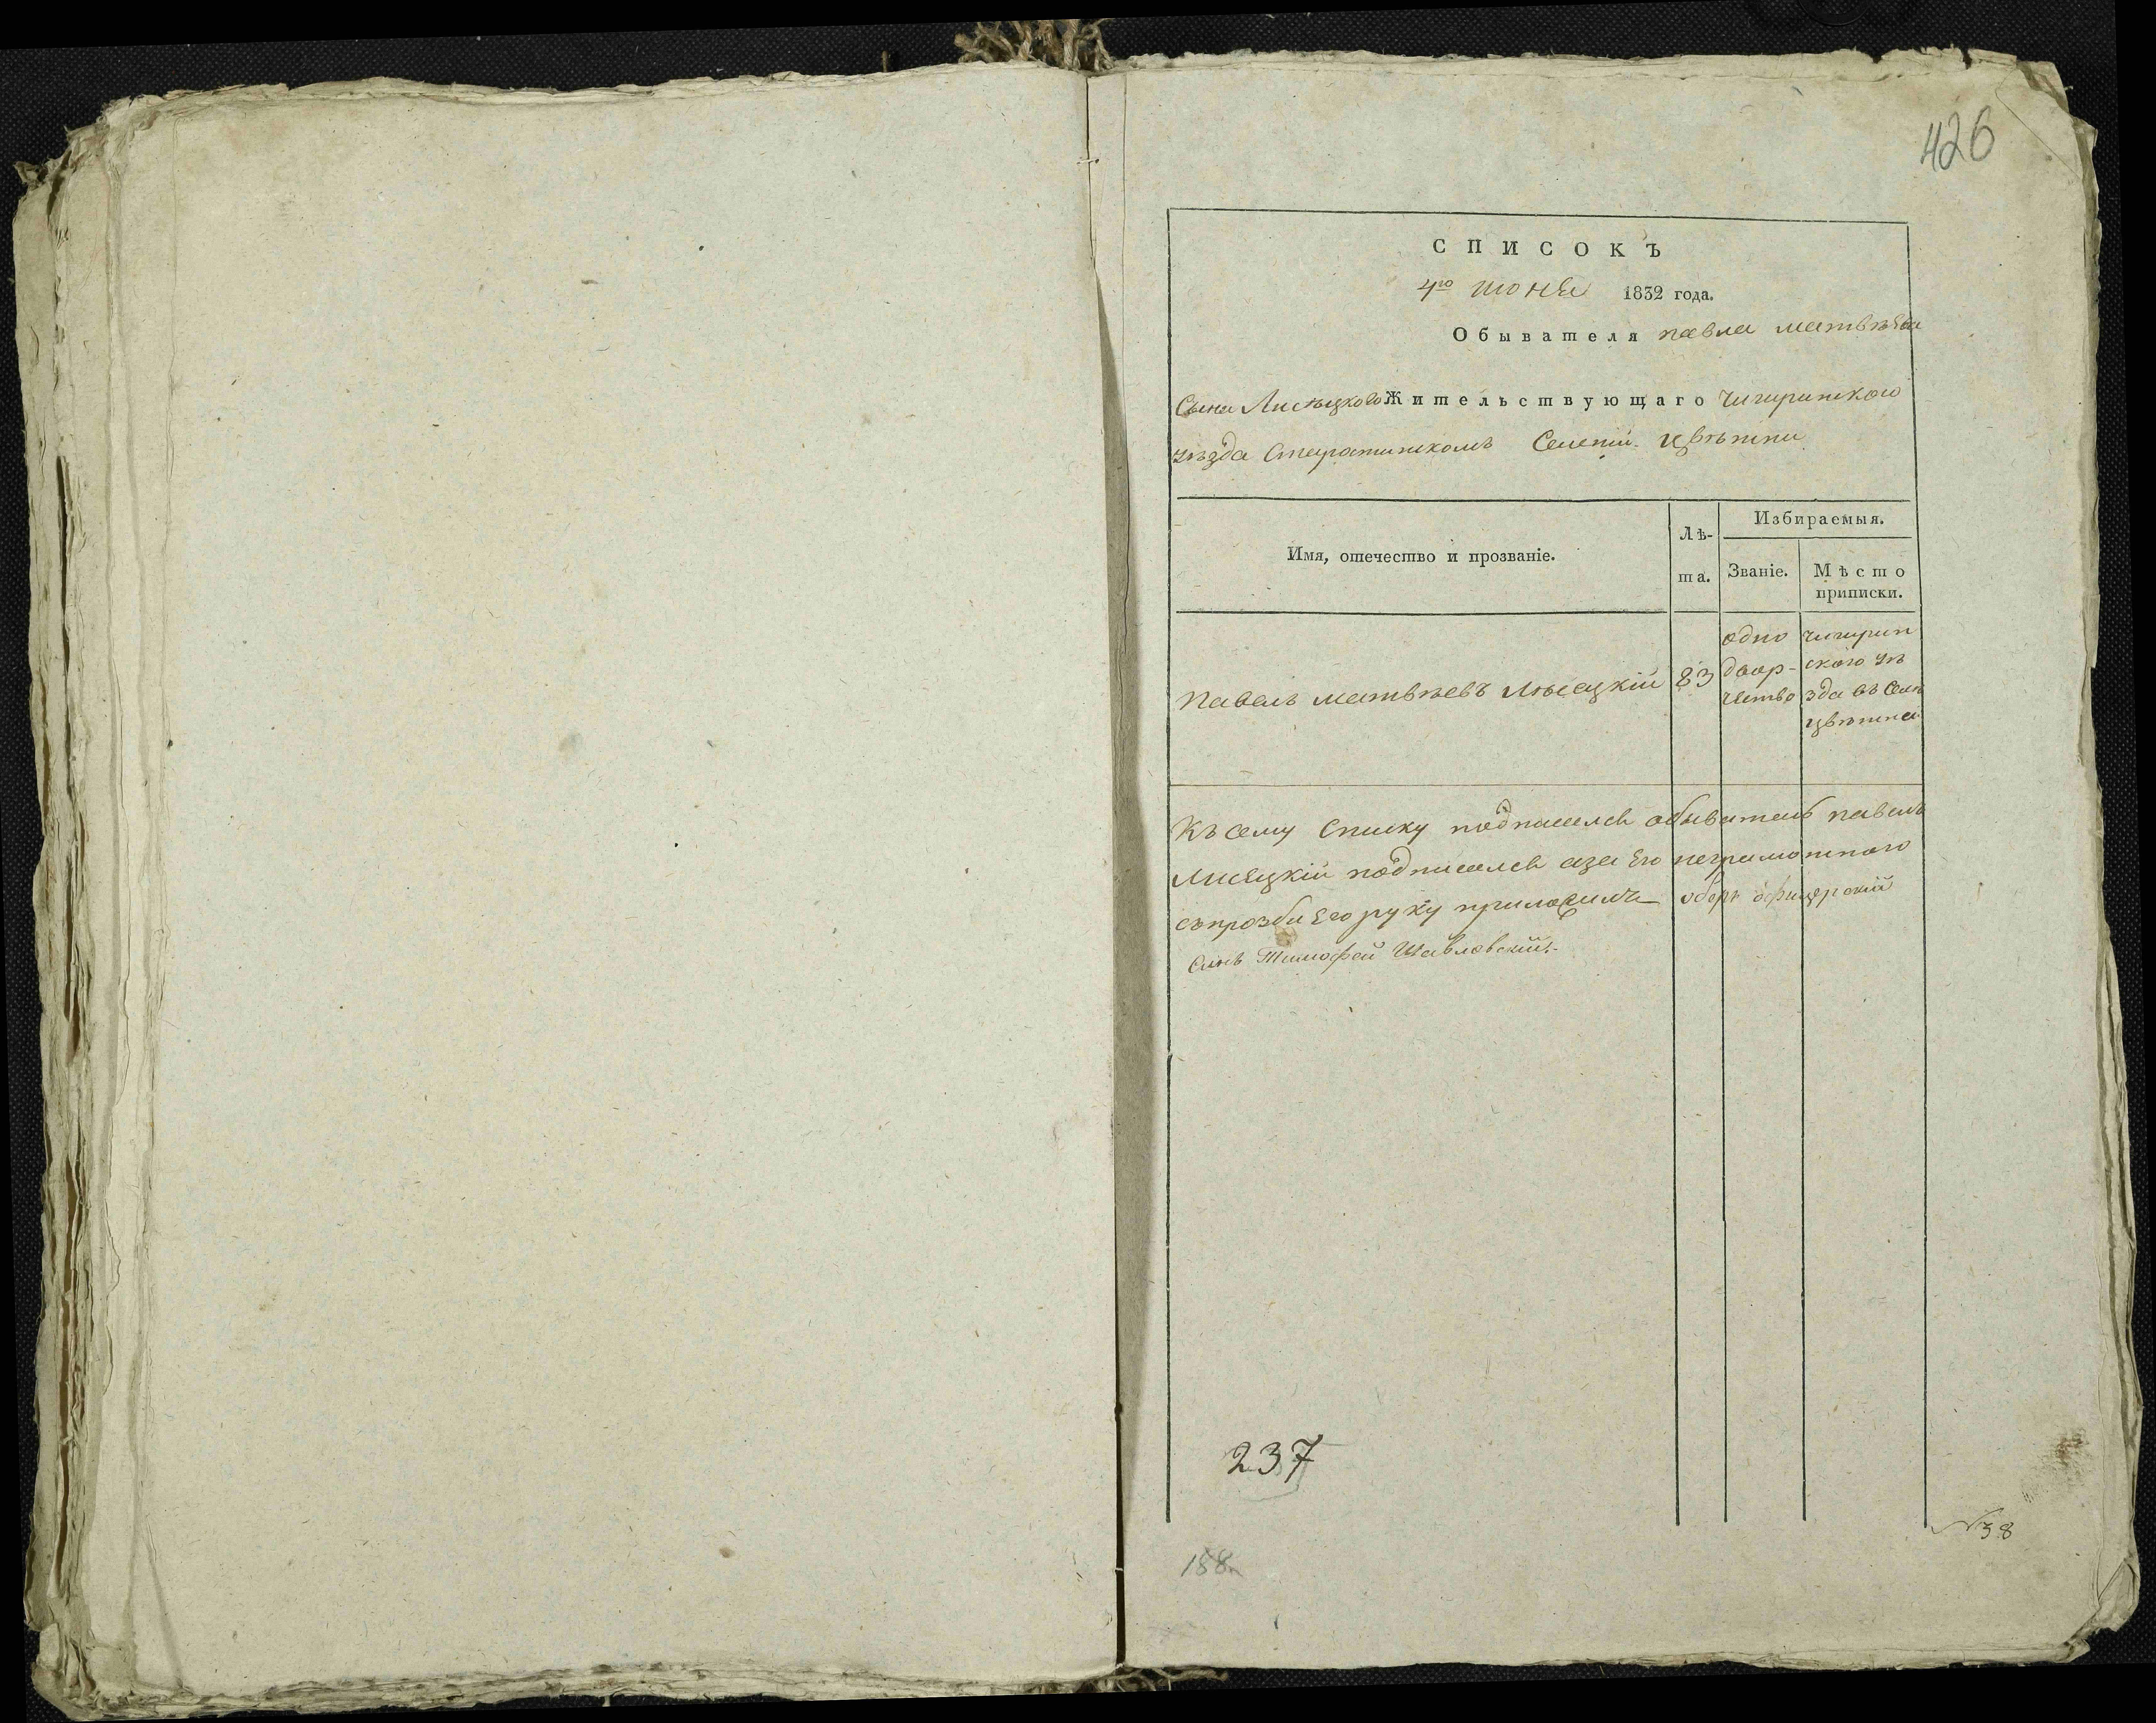 426
СПИСОКЪ
4го июня 1832 года.
Обывателя павла матвѣева
Сына Лисѣцкого Жительствующаго чигиринского
уѣзда Старостинскомъ Селении цвѣтни
Имя, отечество и прозваніе.
Лѣта.
Избираемыя.
Званіе.
Мѣсто приписки.
павелъ матвѣевъ Лисецкій 83
одно
двор-
чество
чигирин
ского уѣ
зда въ Селѣ
цвѣтна
Къ сему Списку подписался обыватель павелъ
Лисецкій подписался аза Его неграмотного
съпрозби Его руку приложилъ оберъ офицерскій
Синъ Тимофей Шавловскій:-
237
188
N38